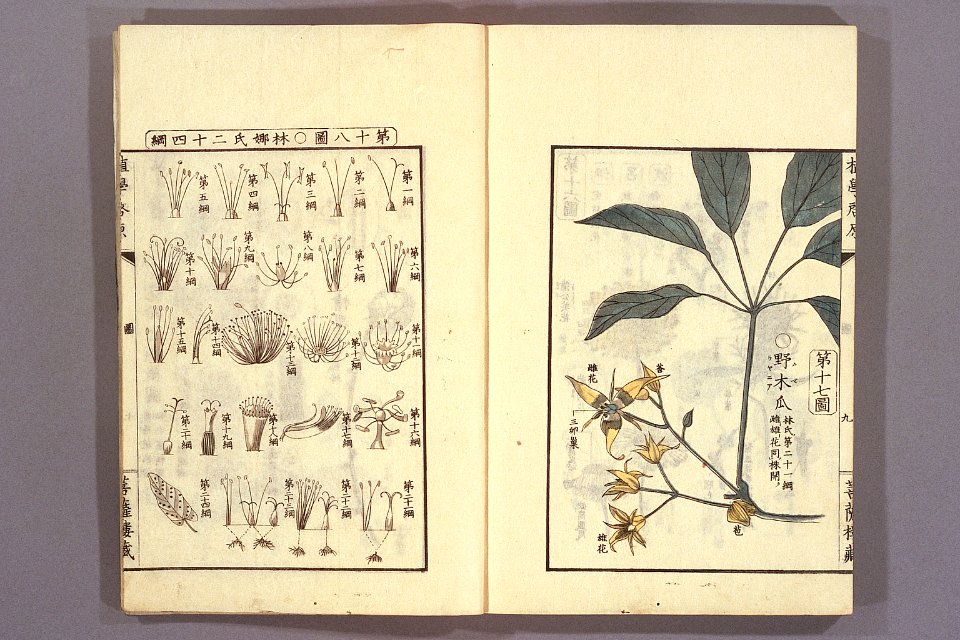 植學啓原
九
菩薩樓藏
第十七圖
○野木瓜
林氏第二十一綱
雌雄花同株開
莟
雌花
三卵巢
雄花
苞
第十八圖○林娜氏二十四綱
第一綱
第二綱
第三綱
第四綱
第五綱
第六綱
第七綱
第八綱
第九綱
第十綱
第十一綱
第十二綱
第十三綱
第十四綱
第十五綱
第十六綱
第十七綱
第十八綱
第十九綱
第二十綱
第二十一綱
第二十二綱
第二十三綱
第二十四綱
植學啓原
圖
菩薩樓藏